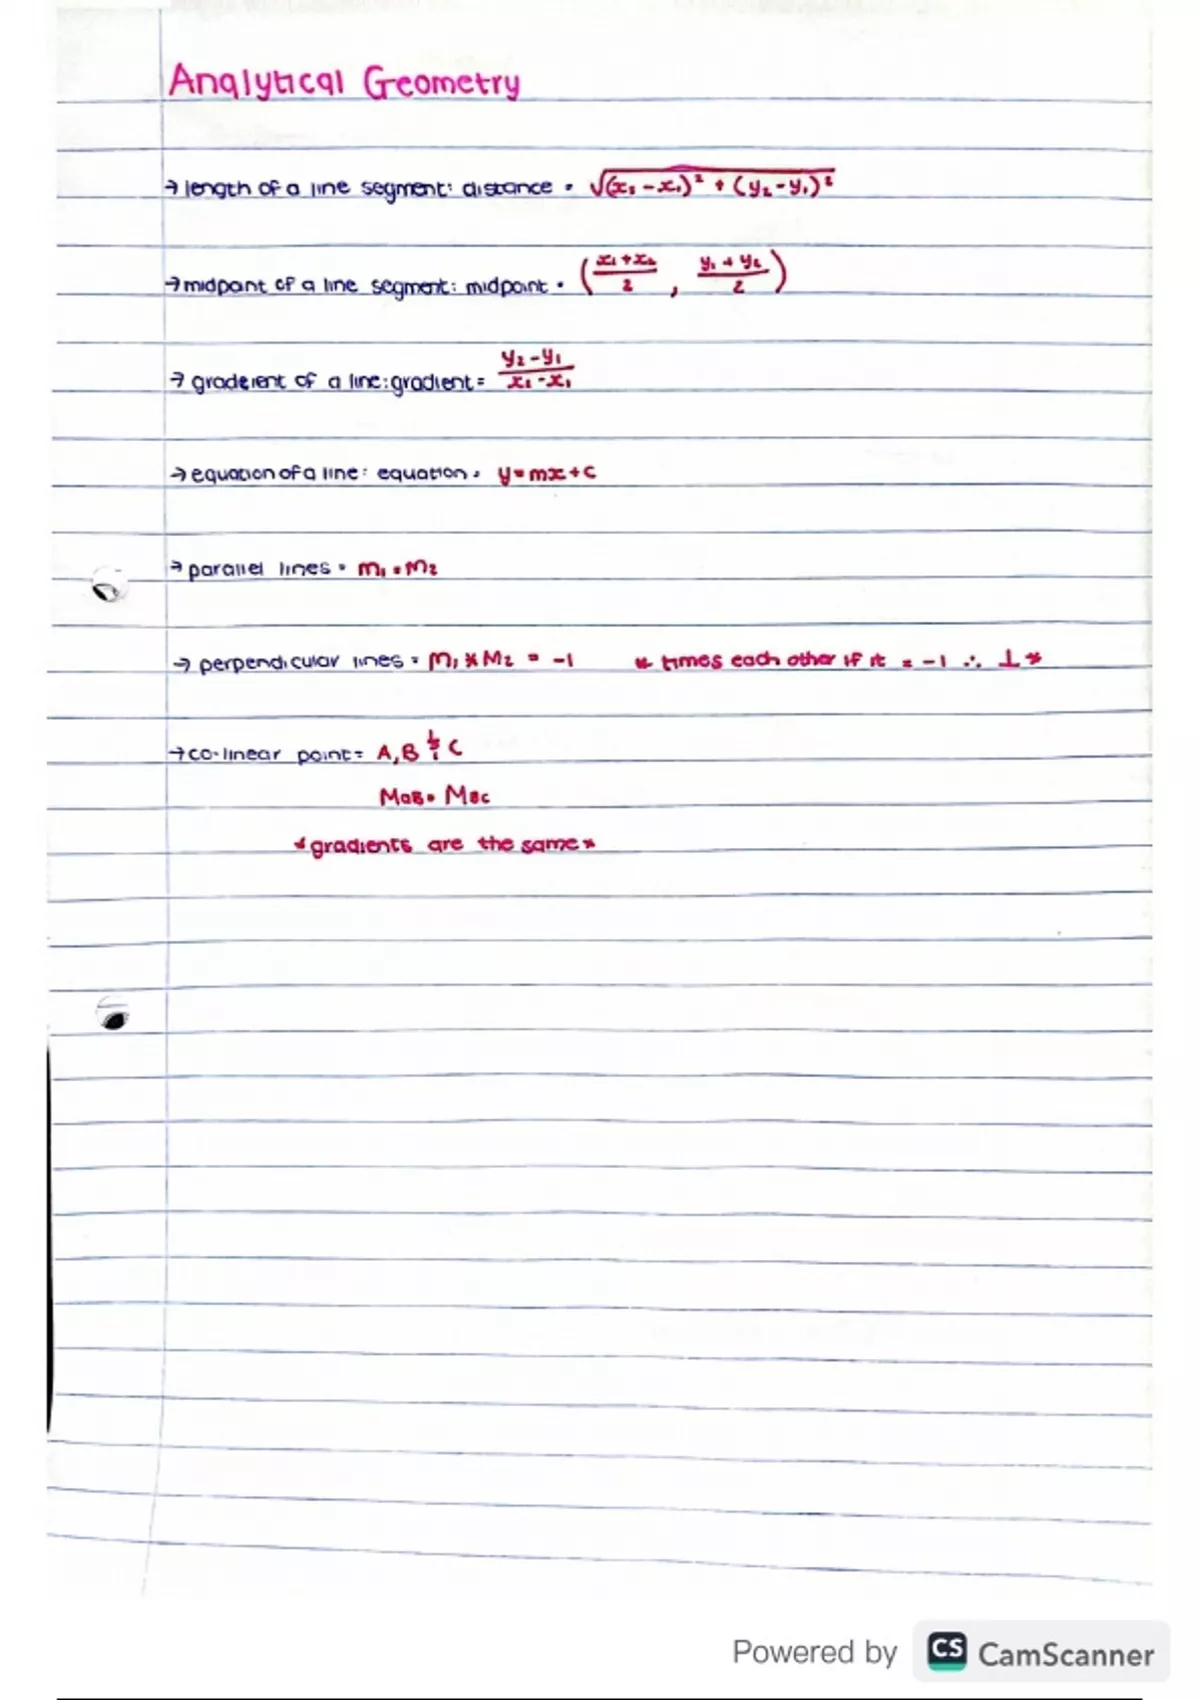 Analytical Geometry
→ length of a line segment: distance = √(x₂ - x₁)² + (y₂ - y₁)²
→ midpoint of a line segment: midpoint = (x₁ + x₂ / 2 , y₁ + y₂ / 2)
→ gradeient of a line: gradient = y₂ - y₁ / x₂ - x₁
→ equation of a line: equation = y = mx + c
→ parallel lines = m₁ = m₂
→ perpendicular lines = m₁ × m₂ = -1 * times each other if it = -1 ∴ ⊥ *
→ co-linear point = A, B & C
MAB = MBC
* gradients are the same *
Powered by CS CamScanner